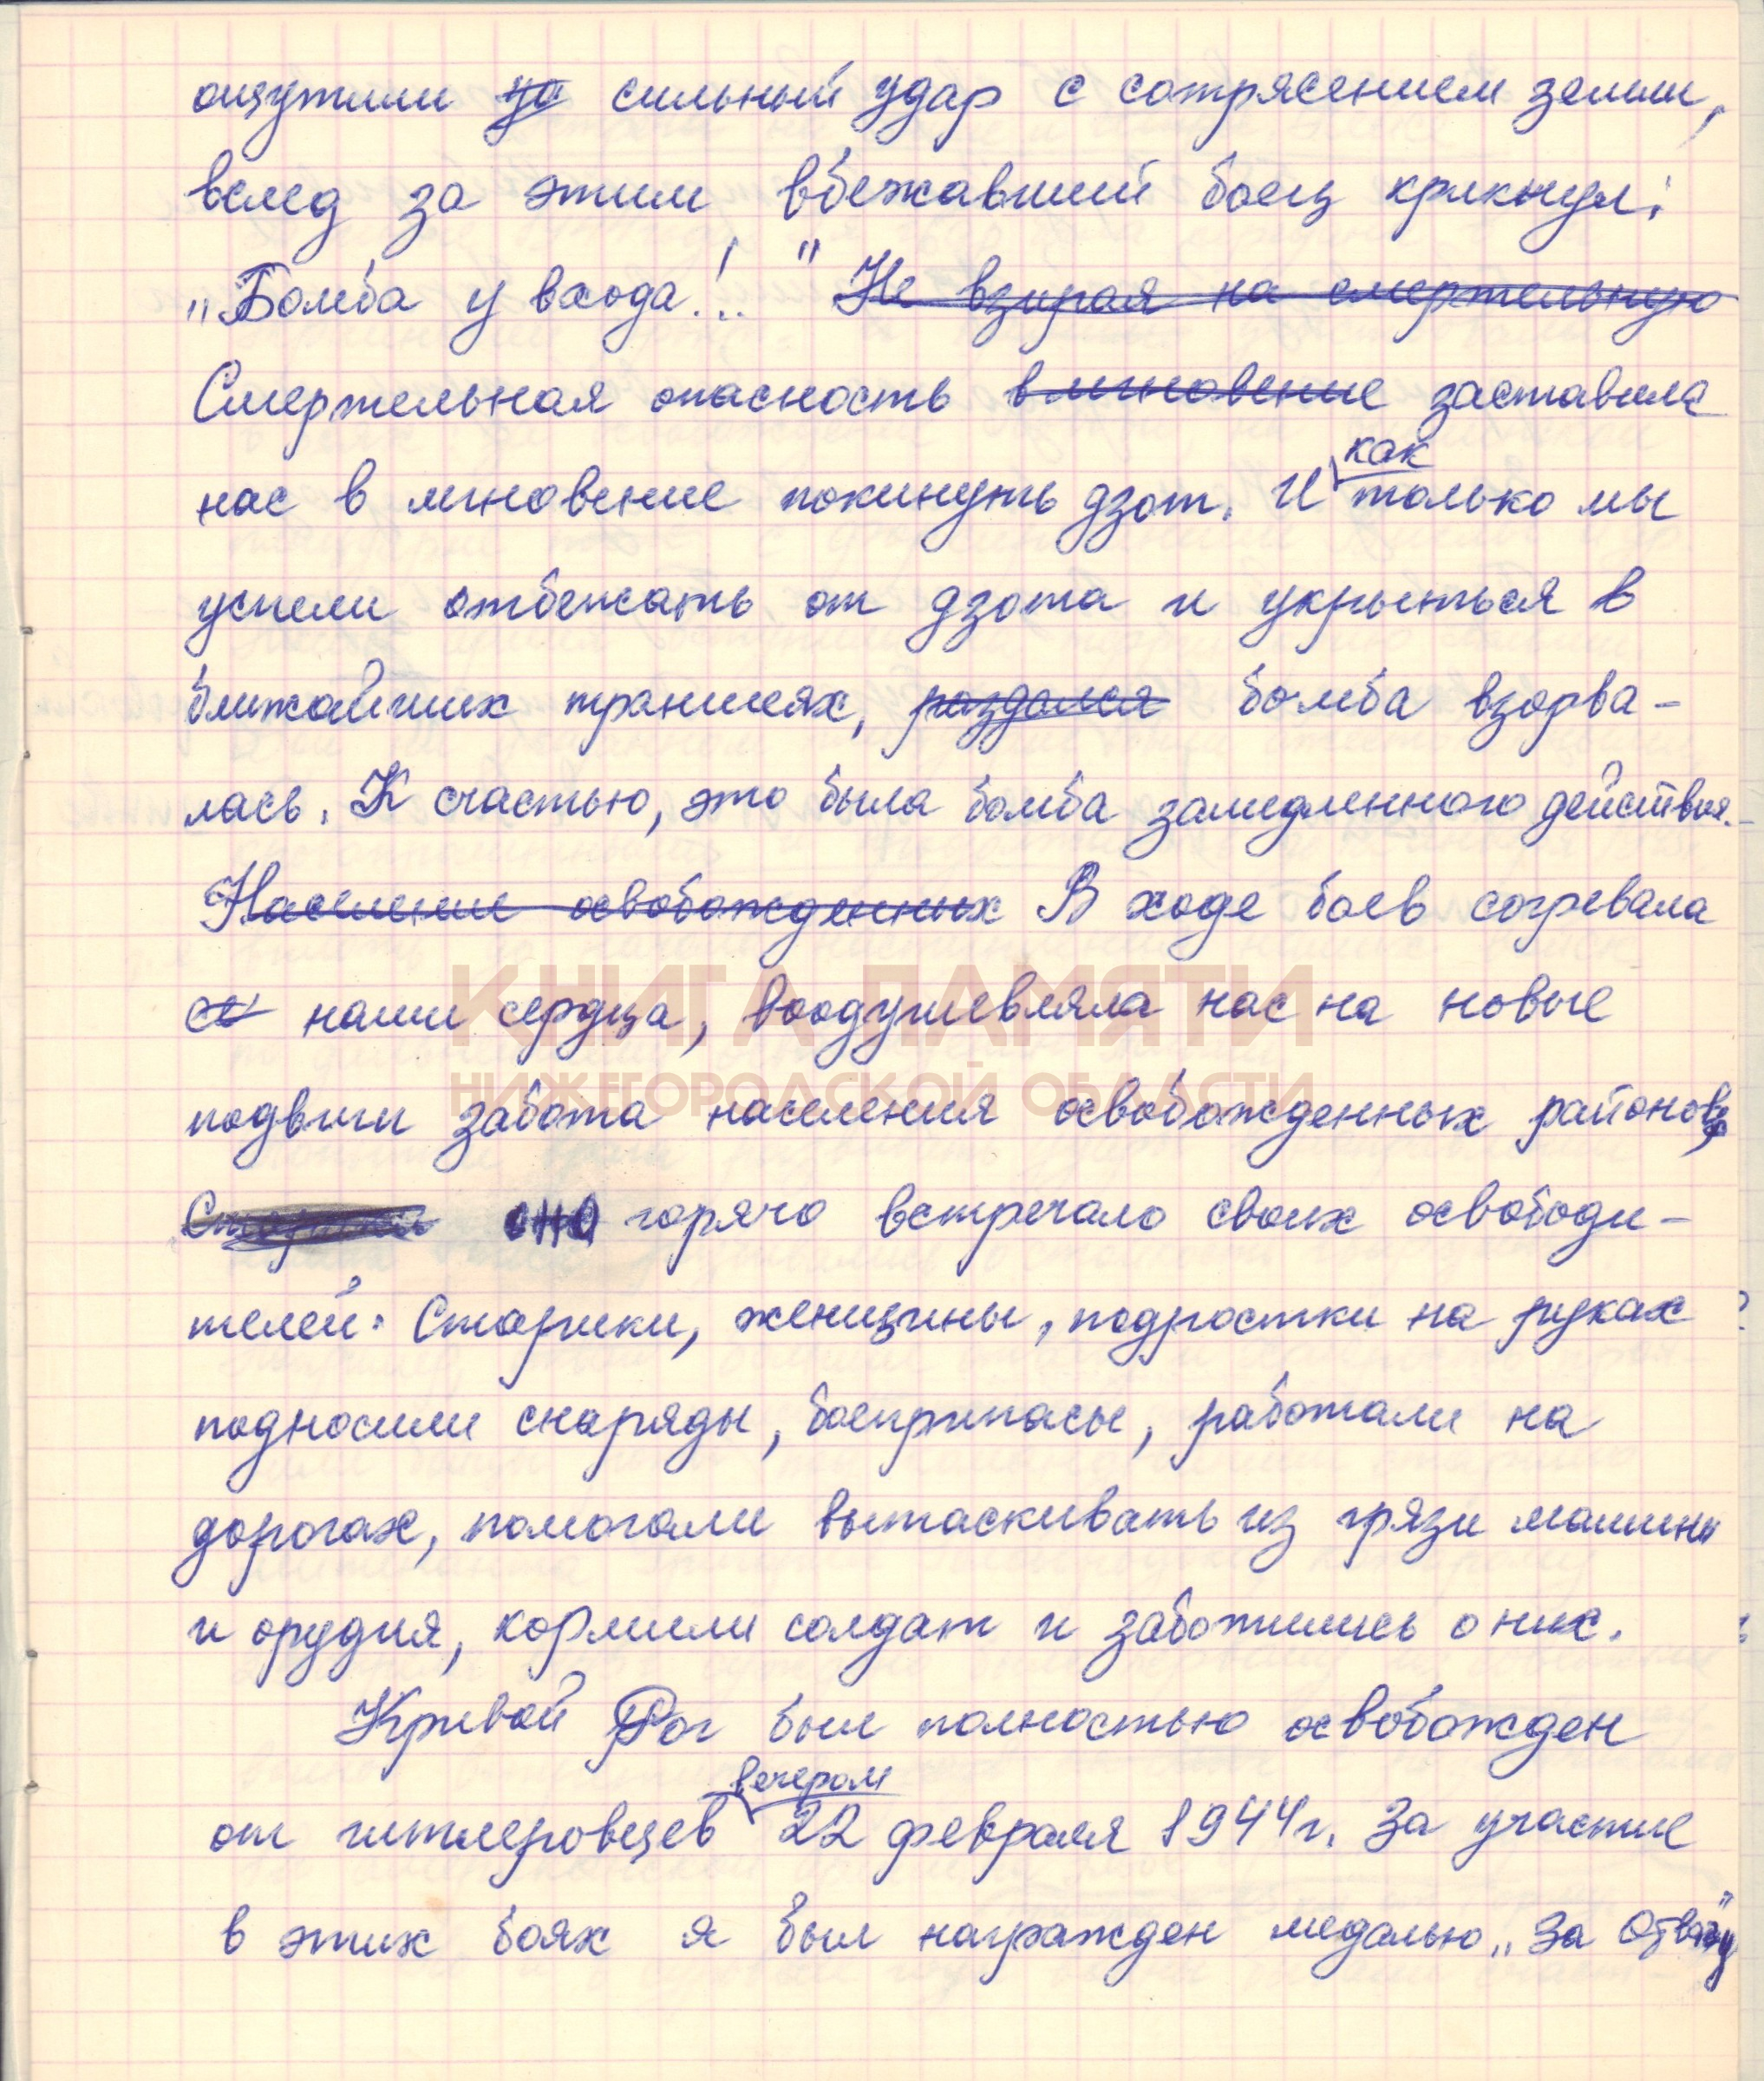 ощутили уд сильный удар с сотрясением земли,
вслед за этим вбежавший боец крикнул:
„Бомба у входа!.." Не взирая на смертельную
Смертельная опасность в мгновение заставила
нас в мгновение покинуть дзот. И как только мы
успели отбежать от дзота и укрыться в
ближайших траншеях, раздался бомба взорва-
лась. К счастью, это была бомба замедленного действия.
Население освобожденных В ходе боев согревала
наши сердца, воодушевляла нас на новые
КНИГА ПАМЯТИ
НИЖЕГОРОДСКОЙ ОБЛАСТИ
подвиги забота населения освобожденных районов,
Старики оно горячо встречало своих освободи-
телей. Старики, женщины, подростки на руках
подносили снаряды, боеприпасы, работали на
дорогах, помогали вытаскивать из грязи машины
и орудия, кормили солдат и заботились о них.
Кривой Рог был полностью освобожден
от гитлеровцев вечером 22 февраля 1944г. За участие
в этих боях я был награжден медалью „За Отвагу"